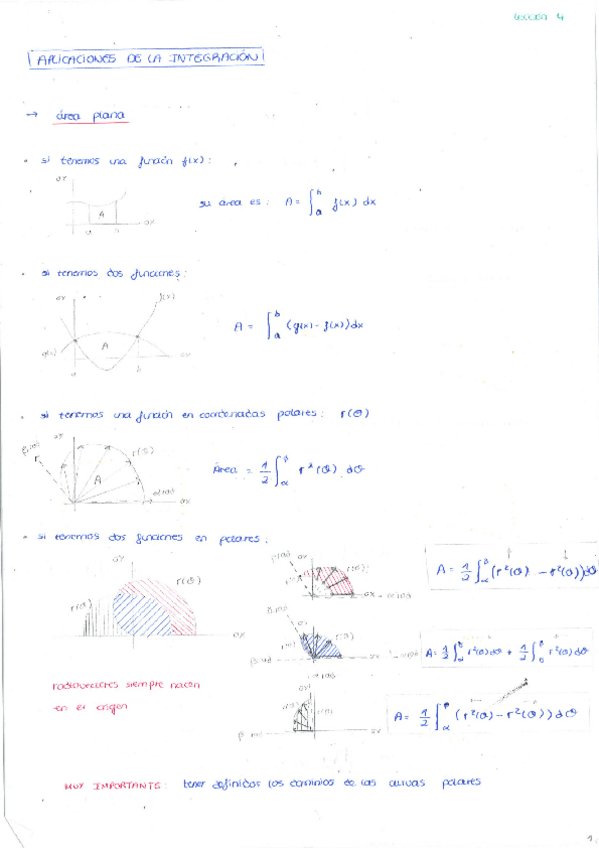 LECCIÓN 4
APLICACIONES DE LA INTEGRACIÓN
→ área plana
• si tenemos una función f(x):
su área es: A = ∫ₐᵇ f(x) dx
A
a
• si tenemos dos funciones:
f(x)
A = ∫ₐᵇ (g(x) - f(x)) dx
g(x)
A
a b
• si tenemos una función en coordenadas polares: r(θ)
r(θ)
Área = 1/2 ∫_α^β r²(θ) dθ
A
• si tenemos dos funciones en polares:
A = 1/2 ∫_α^β (r²(θ) - r²(θ)) dθ
r(θ)
r(θ)
A = 1/2 ∫ r²(θ) dθ + 1/2 ∫ r²(θ) dθ
radiovectores siempre nacen
en el origen
A = 1/2 ∫_α^β (r²(θ) - r²(θ)) dθ
MUY IMPORTANTE: tener definidos los dominios de las curvas polares
1